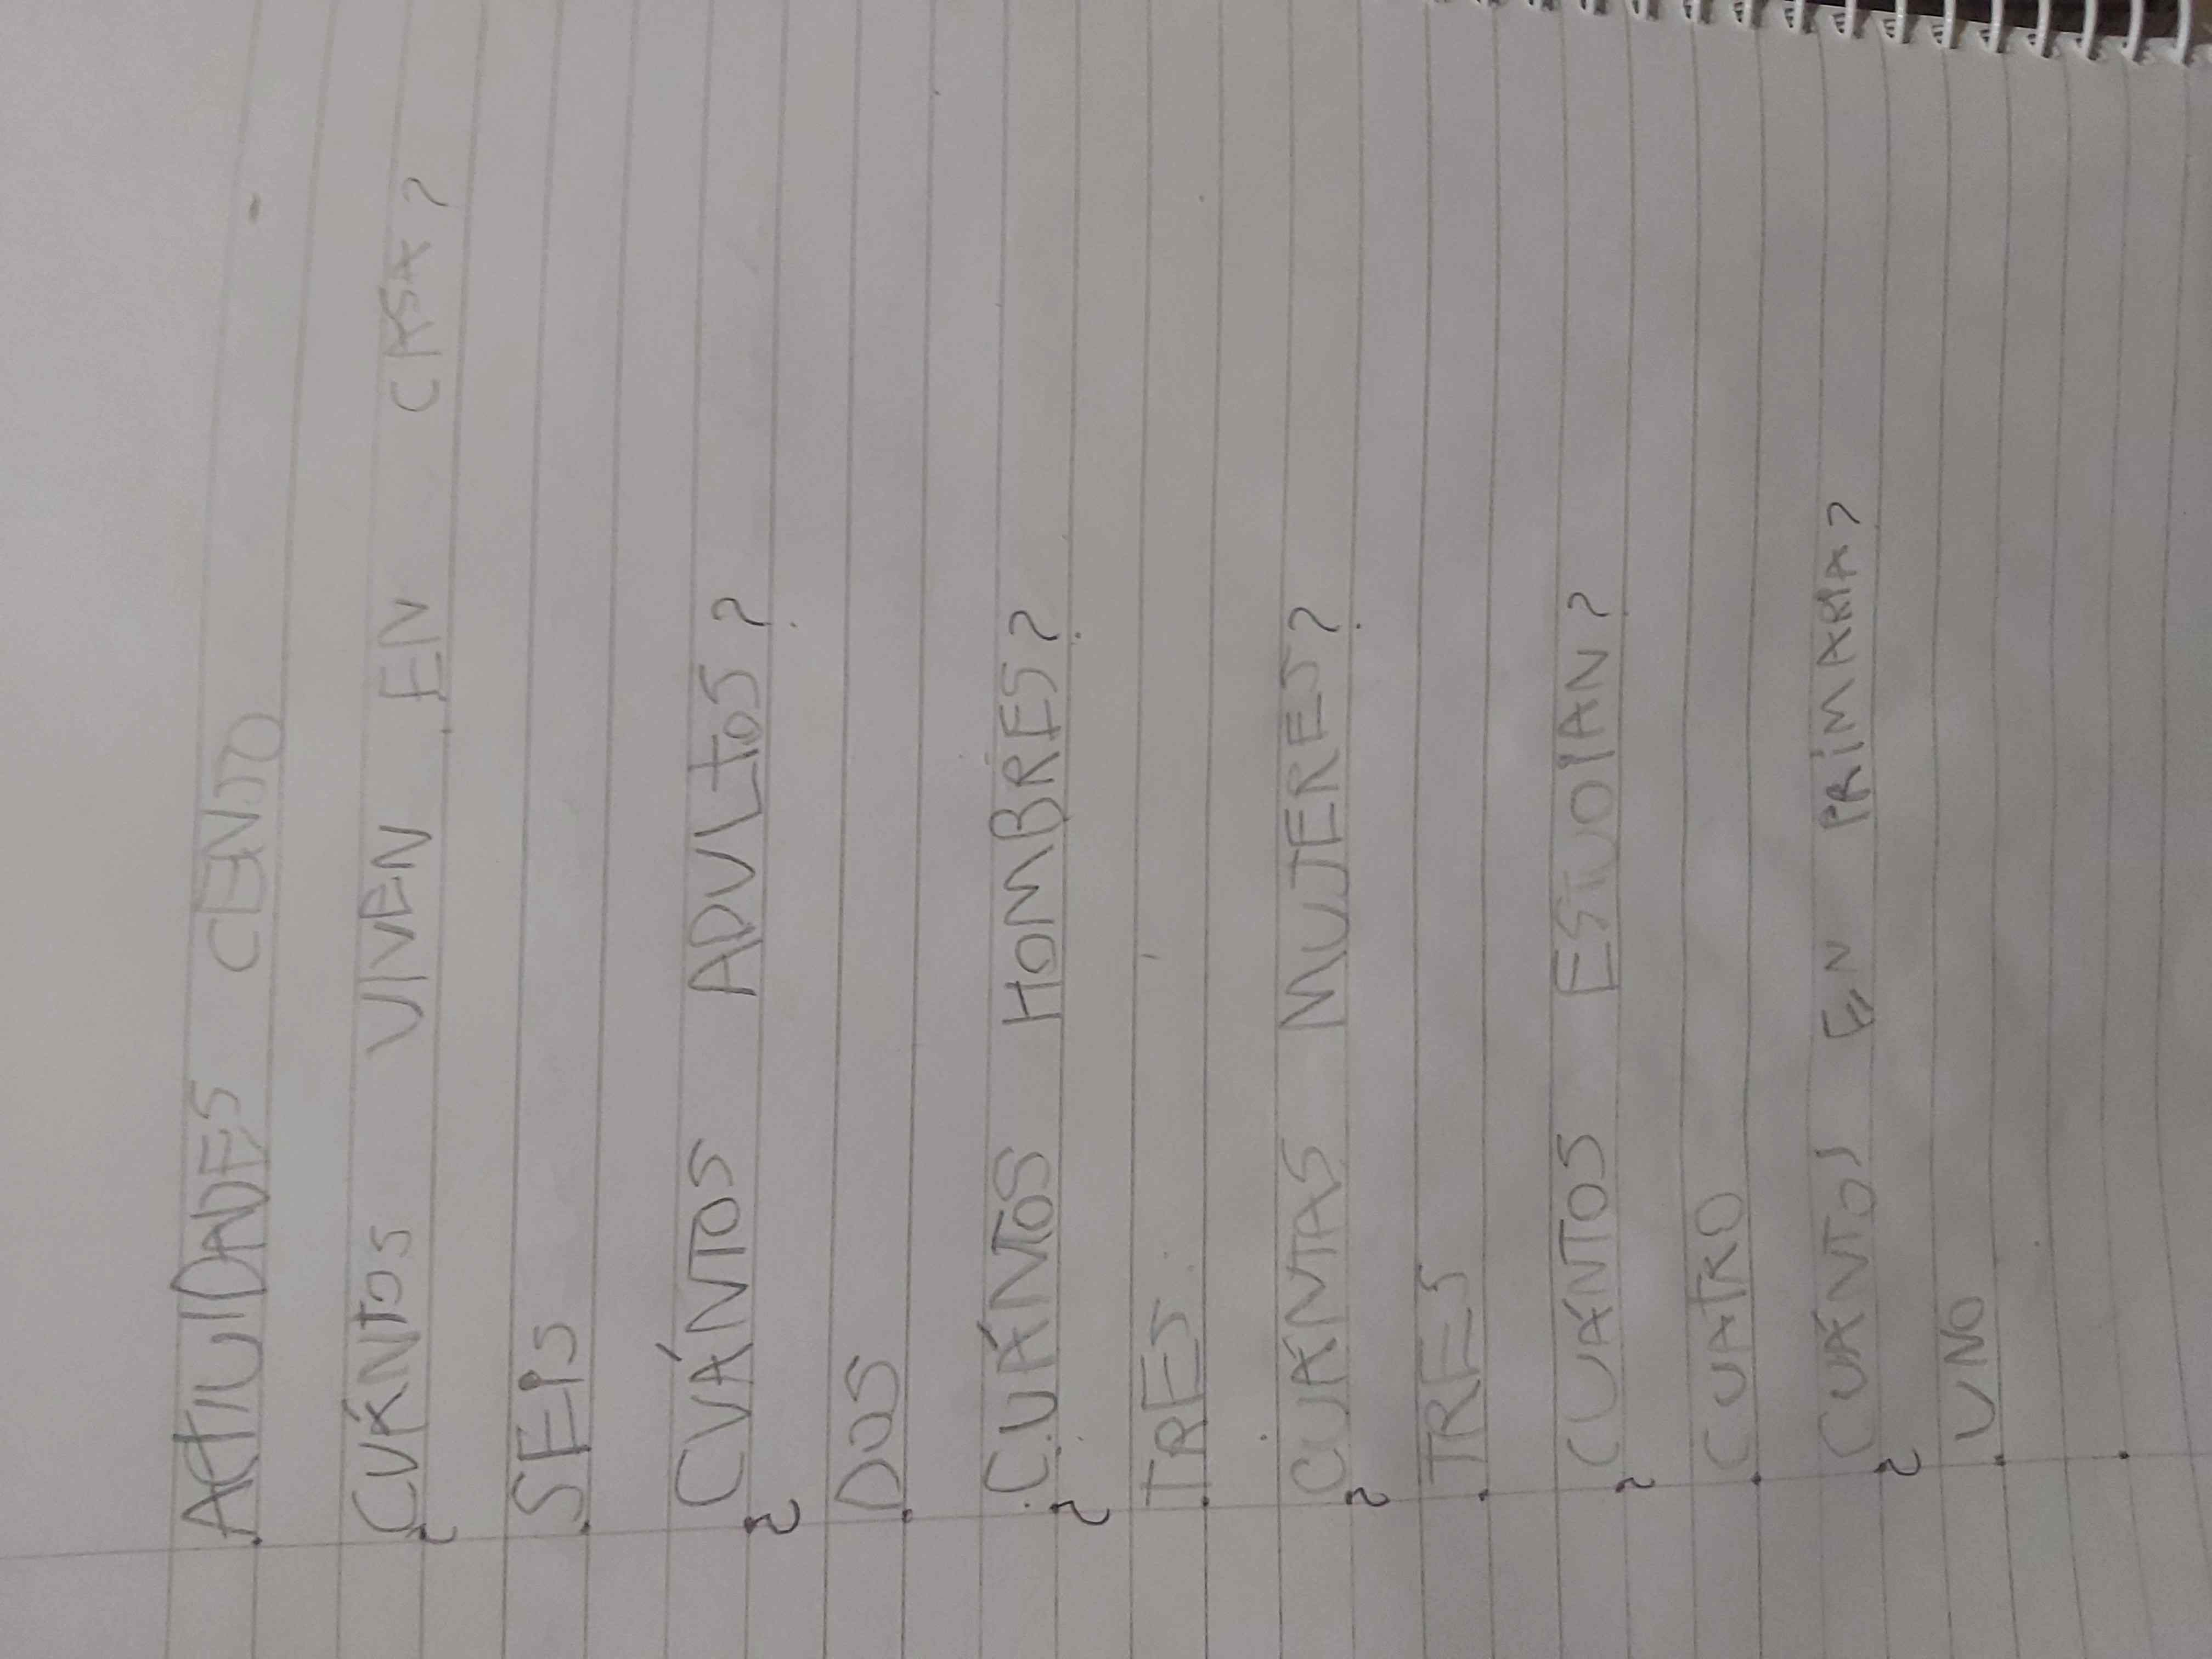 ACTIVIDADES CENSO
¿CUÁNTOS VIVEN EN CASA?
SEIS
¿CUÁNTOS ADULTOS?
DOS
¿CUÁNTOS HOMBRES?
TRES
¿CUÁNTAS MUJERES?
TRES
¿CUÁNTOS ESTUDIAN?
CUATRO
¿CUÁNTOS EN PRIMARIA?
UNO